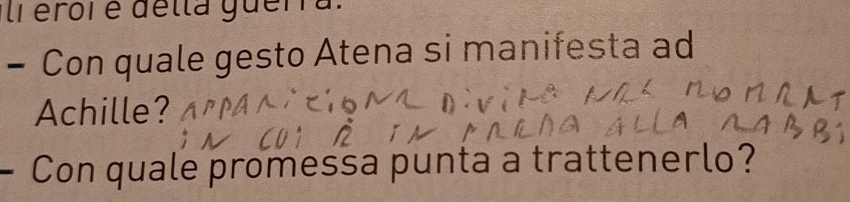 gli eroi e della guerra.
– Con quale gesto Atena si manifesta ad
Achille? APPARIZIONE DIVINA NEL MOMENT
IN CUI È IN PREDA ALLA RABBI
– Con quale promessa punta a trattenerlo?